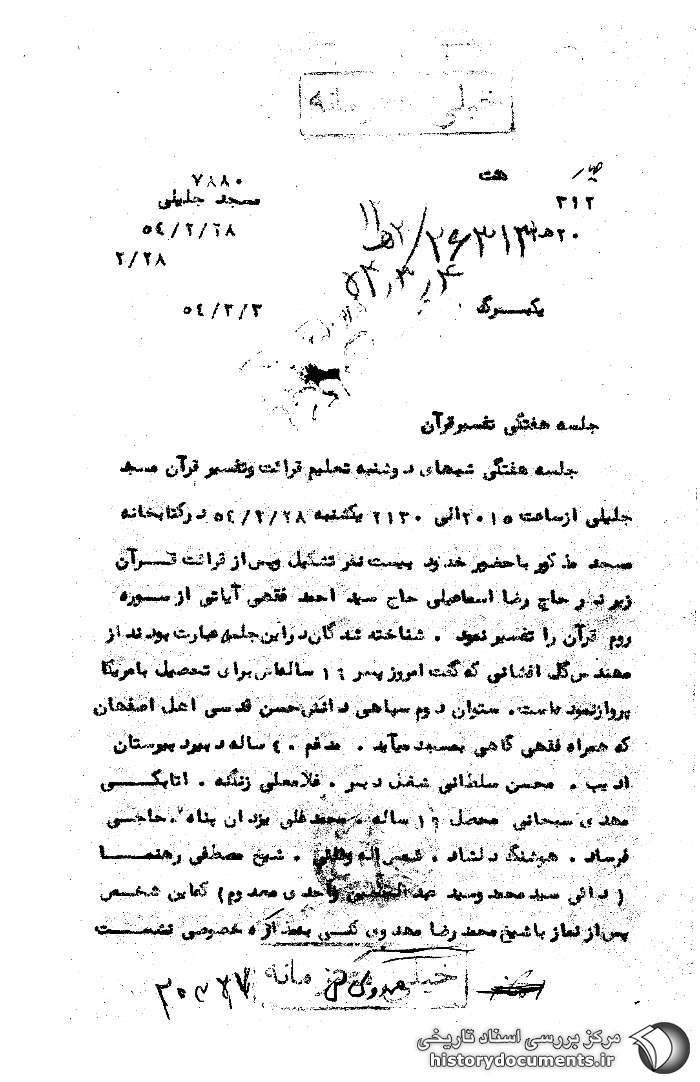 خیلی محرمانه
هفت
۷۸۸۰
۳۱۲
مسجد جلیلی
۲۰ هـ
۵۴/۲/۲۸
۲/۲۸
یکبرگ
۵۴/۳/۳
جلسه هفتگی تفسیرقرآن
جلسه هفتگی شبهای دوشنبه تعلیم قرائت وتفسیر قرآن مسجد
جلیلی ازساعت ۲۰۱۵الی ۲۱۳۰ یکشنبه ۵۴/۲/۲۸ درکتابخانه
مسجد مذکور باحضور حدود بیست نفر تشکیل وپس از قرائت قـرآن
زیر نظر حاج رضا اسماعیلی حاج سید احمد فقهی آیاتی از سوره
روم قرآن را تفسیر نمود . شناخته شدگان دراین جلسه عبارت بودند از
مهندس گل افشانی که گفت امروز پسر ۱۶ ساله‌اش برای تحصیل بامریکا
پروازنموده است. ستوان دوم سپاهی دانش حسن قدسی اهل اصفهان
که همراه فقهی گاهی بمسجد میآید . مدقم ۴۰ ساله دبیر دبیرستان
ادیب . محسن سلطانی شغل دبیر . غلامعلی زنگنه . اتابکـی
مهدی سبحانی محصل ۱۶ ساله . محمدعلی یزدان پناه . حاجی
فرساد . هوشنگ دلشاد . شیخ مصطفی رهنمـا
(دائی سید محمد وسید عبد واحدی معدوم) که این شخص
پس از نماز با شیخ محمد رضا مهدوی کنی خصوصی نشست
خیلی محرمانه
مرکز بررسی اسناد تاریخی
historydocuments.ir